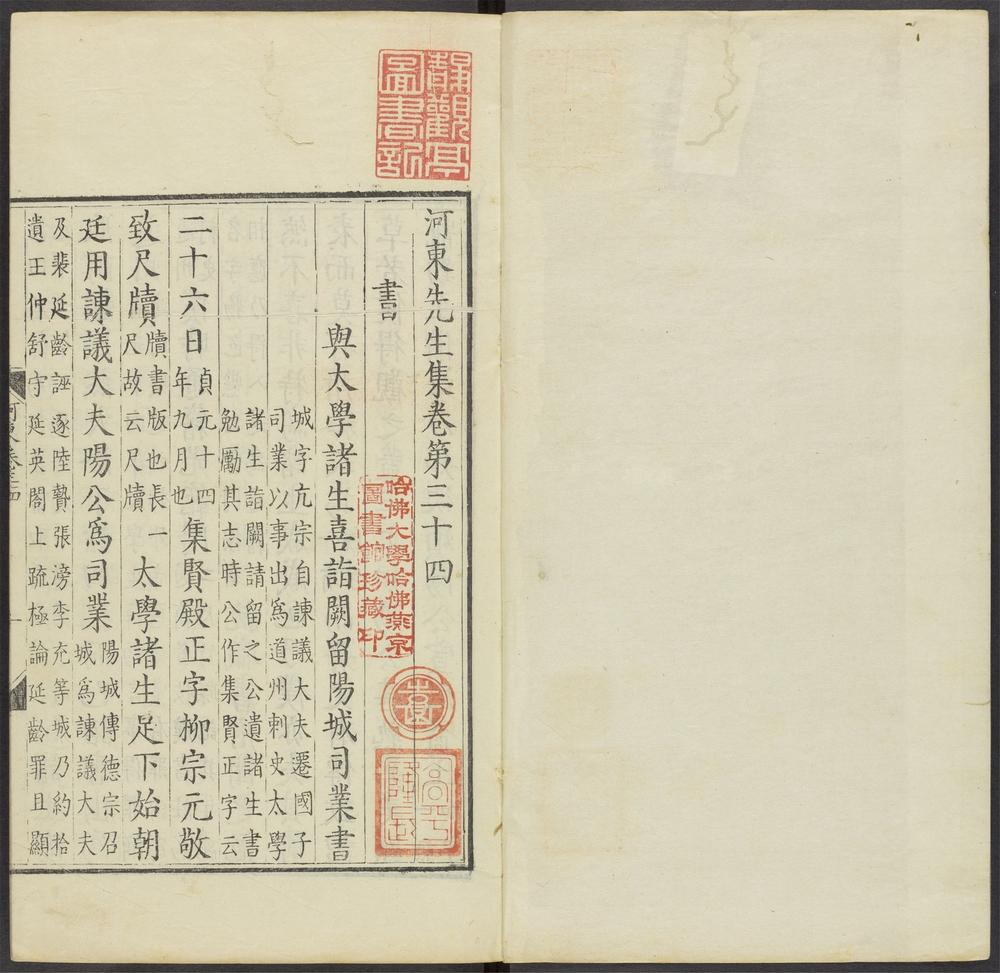 靜觀亭
圖書記
河東先生集卷第三十四
哈佛大學哈佛燕京
圖書館珍藏印
書
與太學諸生喜詣闕留陽城司業書
城字亢宗自諫議大夫遷國子
司業以事出爲道州刺史太學
諸生詣闕請留之公遺諸生書
勉勵其志時公作集賢正字云
二十六日貞元十四年九月也集賢殿正字柳宗元敬
致尺牘牘書版也長一尺故云尺牘太學諸生足下始朝
廷用諫議大夫陽公爲司業陽城傳德宗召城爲諫議大夫
及裴延齡誣逐陸贄張滂李充等城乃約拾
遺王仲舒守延英閣上疏極論延齡罪且顯